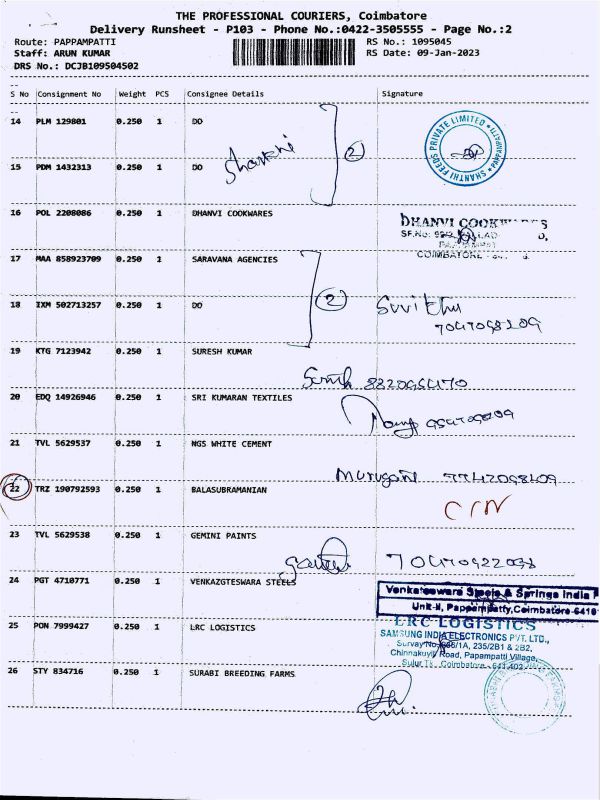 THE PROFESSIONAL COURIERS, Coimbatore
Delivery Runsheet - P103 - Phone No.:0422-3505555 - Page No.:2
Route: PAPPAMPATTI
RS No.: 1095045
Staff: ARUN KUMAR
RS Date: 09-Jan-2023
DRS No.: DCJB109504502
S No Consignment No Weight PCS Consignee Details Signature
14 PLM 129801 0.250 1 DO
SHANTHI FEEDS PRIVATE LIMITED
15 PDM 1432313 0.250 1 DO
2
16 POL 2208086 0.250 1 DHANVI COOKWARES
DHANVI COOKW
COIMBATORE
17 MAA 858923709 0.250 1 SARAVANA AGENCIES
18 IXM 502713257 0.250 1 DO
2
19 KTG 7123942 0.250 1 SURESH KUMAR
20 EDQ 14926946 0.250 1 SRI KUMARAN TEXTILES
21 TVL 5629537 0.250 1 NGS WHITE CEMENT
Murugan
22 TRZ 190792593 0.250 1 BALASUBRAMANIAN
23 TVL 5629538 0.250 1 GEMINI PAINTS
24 PGT 4710771 0.250 1 VENKAZGTESWARA STEELS
Venkateswara Steels & Springs India P
Unit-II, Pappampatty, Coimbatore-6416
25 PON 7999427 0.250 1 LRC LOGISTICS
LRC LOGISTICS
SAMSUNG INDIA ELECTRONICS PVT. LTD.,
235/2B1 & 2B2,
Chinnakuyili Road, Papampatti Village,
Sulur Tk Coimbatore - 641 402
26 STY 834716 0.250 1 SURABI BREEDING FARMS